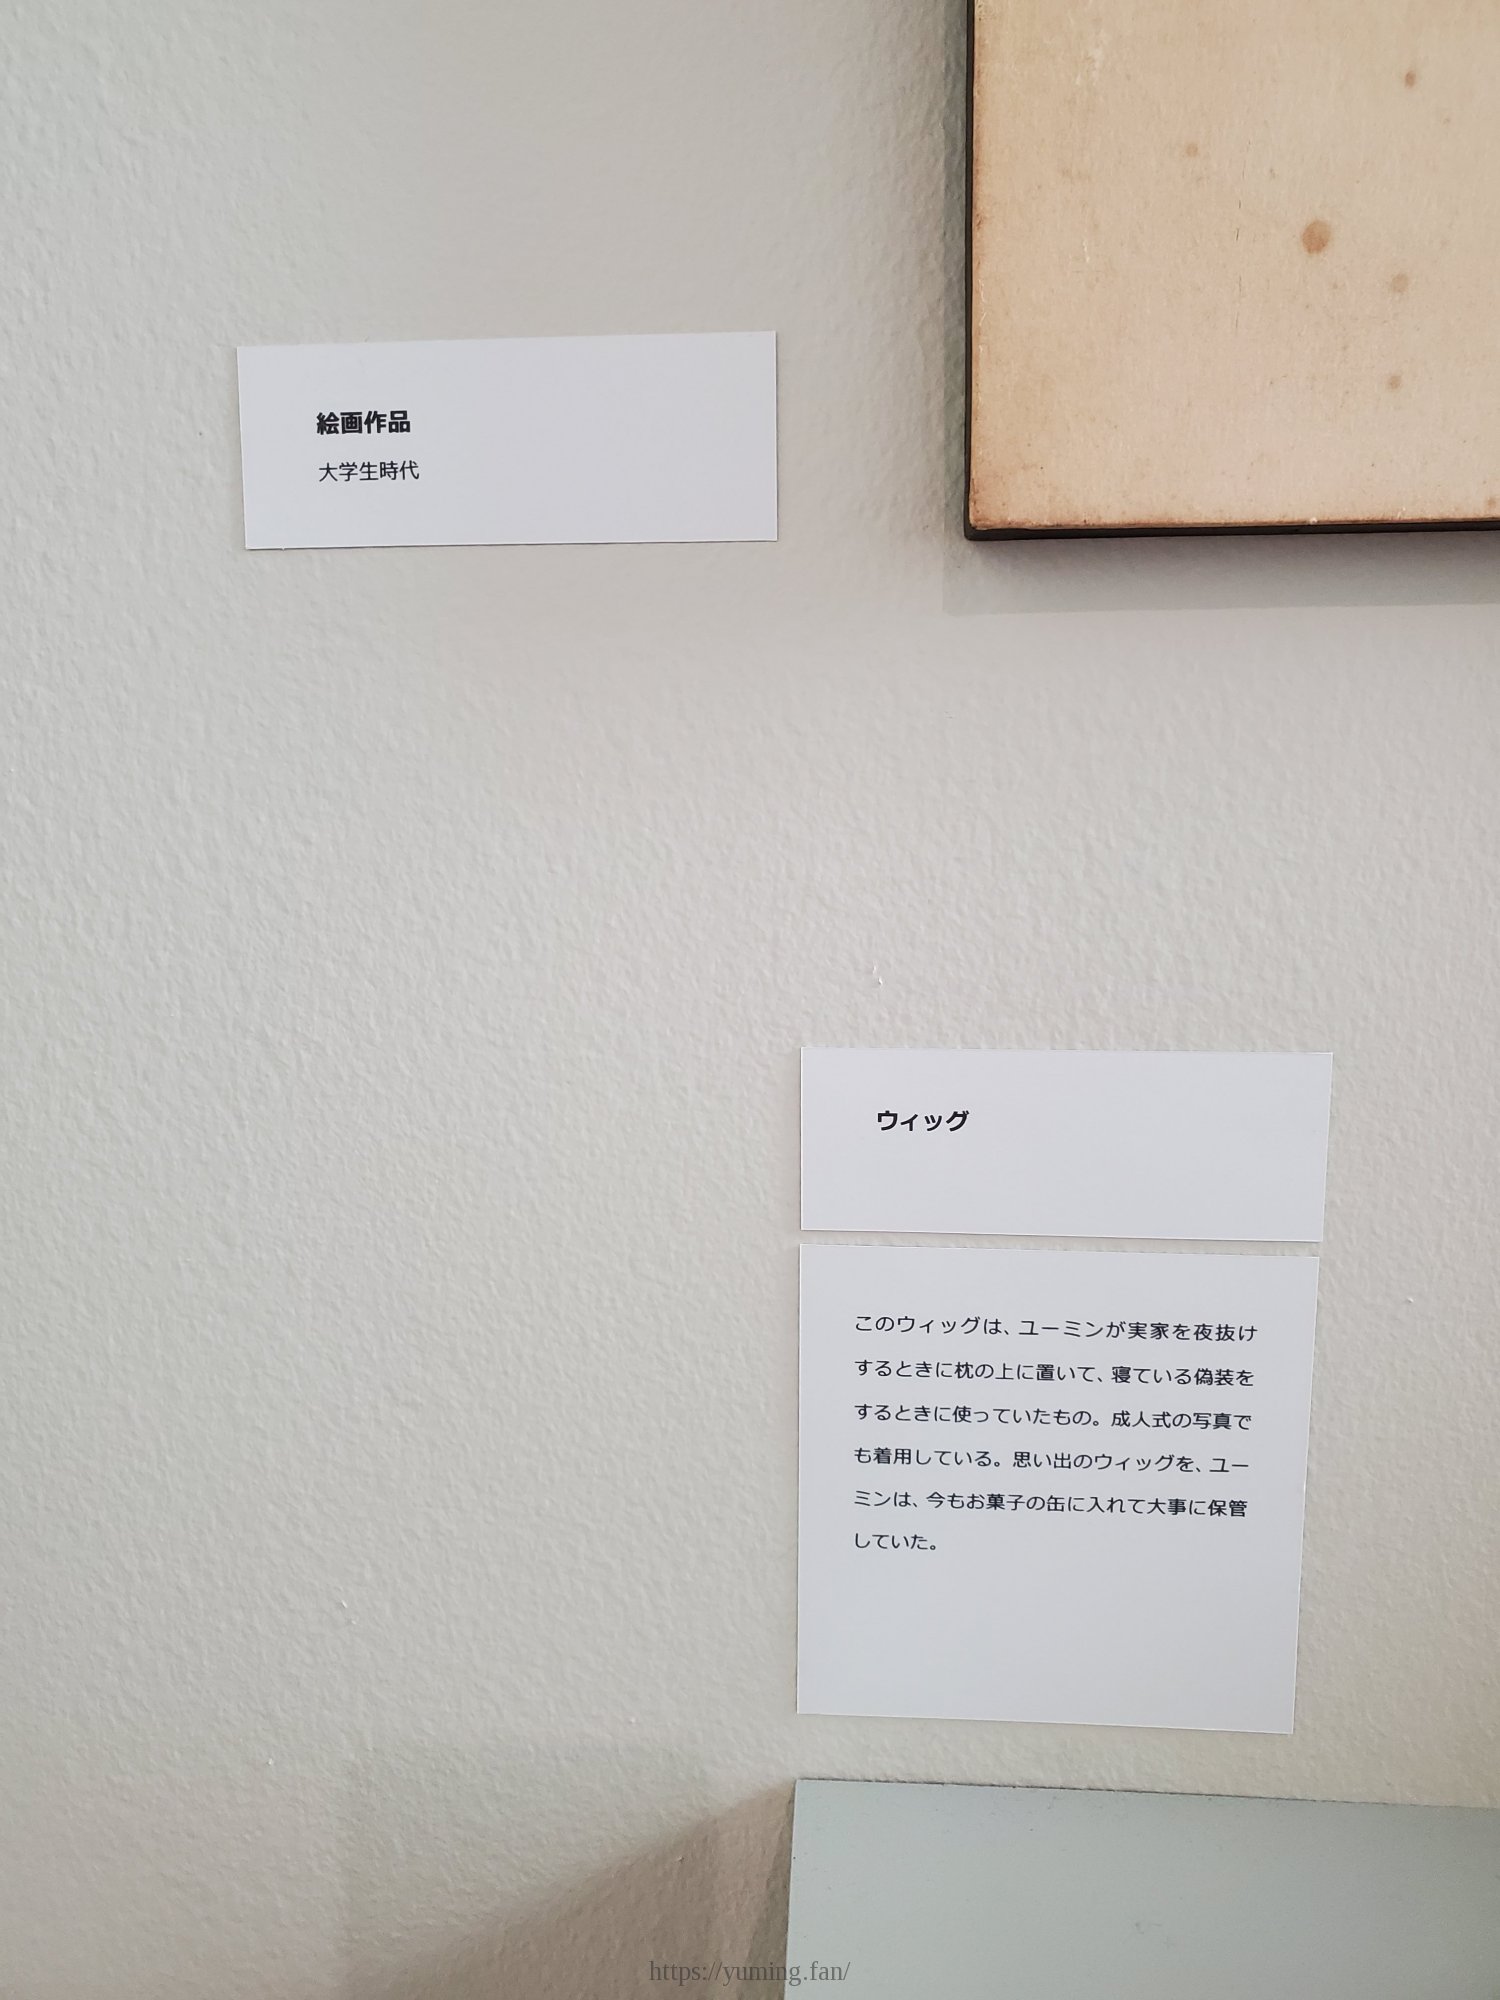 絵画作品
大学生時代
ウィッグ
このウィッグは、ユーミンが実家を夜抜け
するときに枕の上に置いて、寝ている偽装を
するときに使っていたもの。成人式の写真で
も着用している。思い出のウィッグを、ユー
ミンは、今もお菓子の缶に入れて大事に保管
していた。
https://yuming.fan/